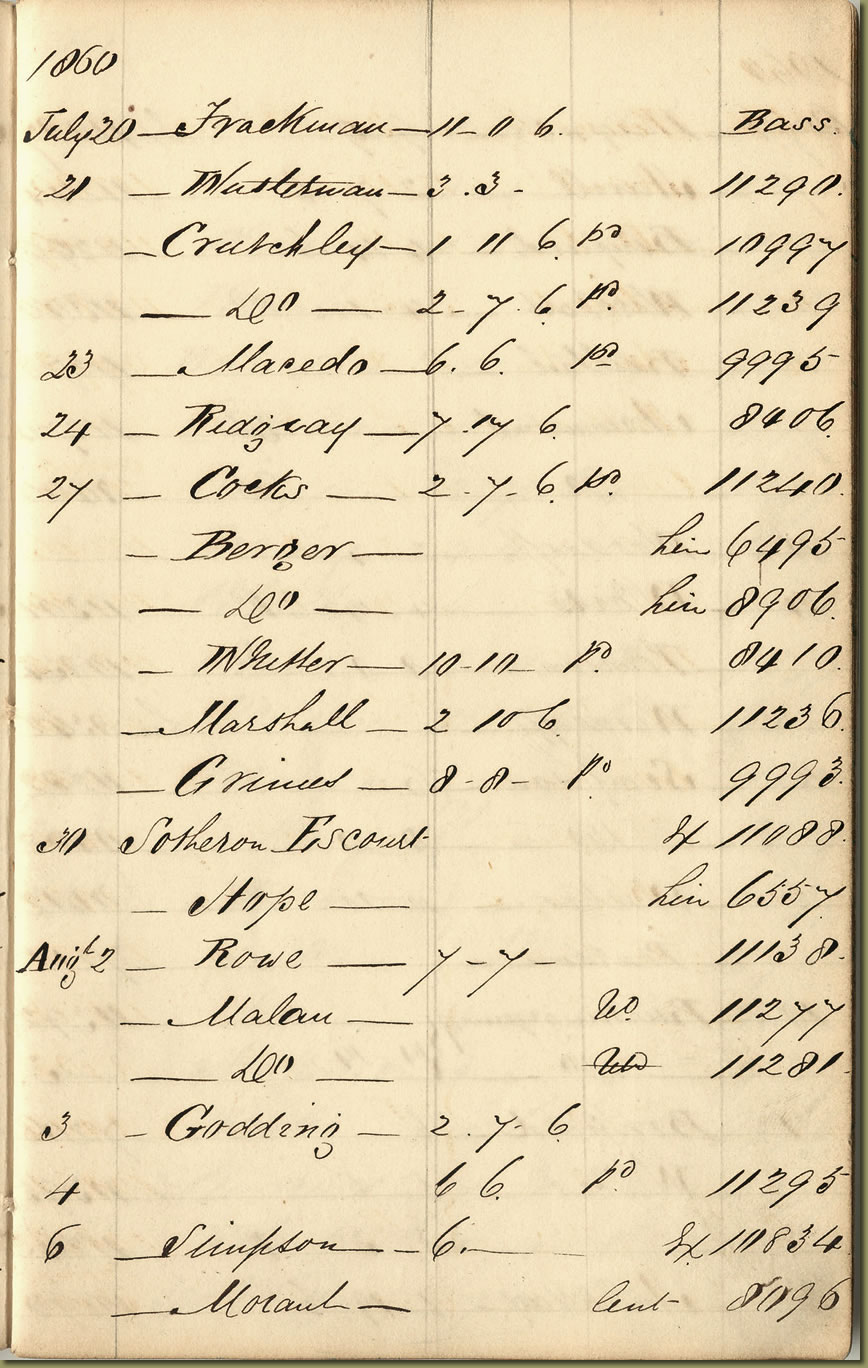 1860
July 20 — Trackman — 11 - 0 6. Bass.
21 — Musterman — 3 . 3 - 11290.
— Crutchley — 1 11 6. pd 10997
— Do — 2 - 7 . 6 pd. 11239
23 — Macedo — 6. 6. pd 9995
24 — Ridgway — 7 . 17 6. 8406.
27 — Cocks — 2 . 7 - 6. pd. 11240.
— Berger — hin 6495
— Do — hin 8906.
— Whitter — 10 - 10 — pd. 8410.
— Marshall — 2 10 6. 11236.
— Grimes — 8 - 8 — pd. 9993.
30 Sotheron Escourt Ex 11088.
— Hope — hin 6557
Augt 2 — Rowe — 7 - 7 — 11138.
— Malan — Wd. 11277
— Do — Wd 11281.
3 — Godding — 2 . 7 - 6.
4 6 6. pd 11295
6 — Simpson — 6. — Ex 10834.
— Morant — lent 8096